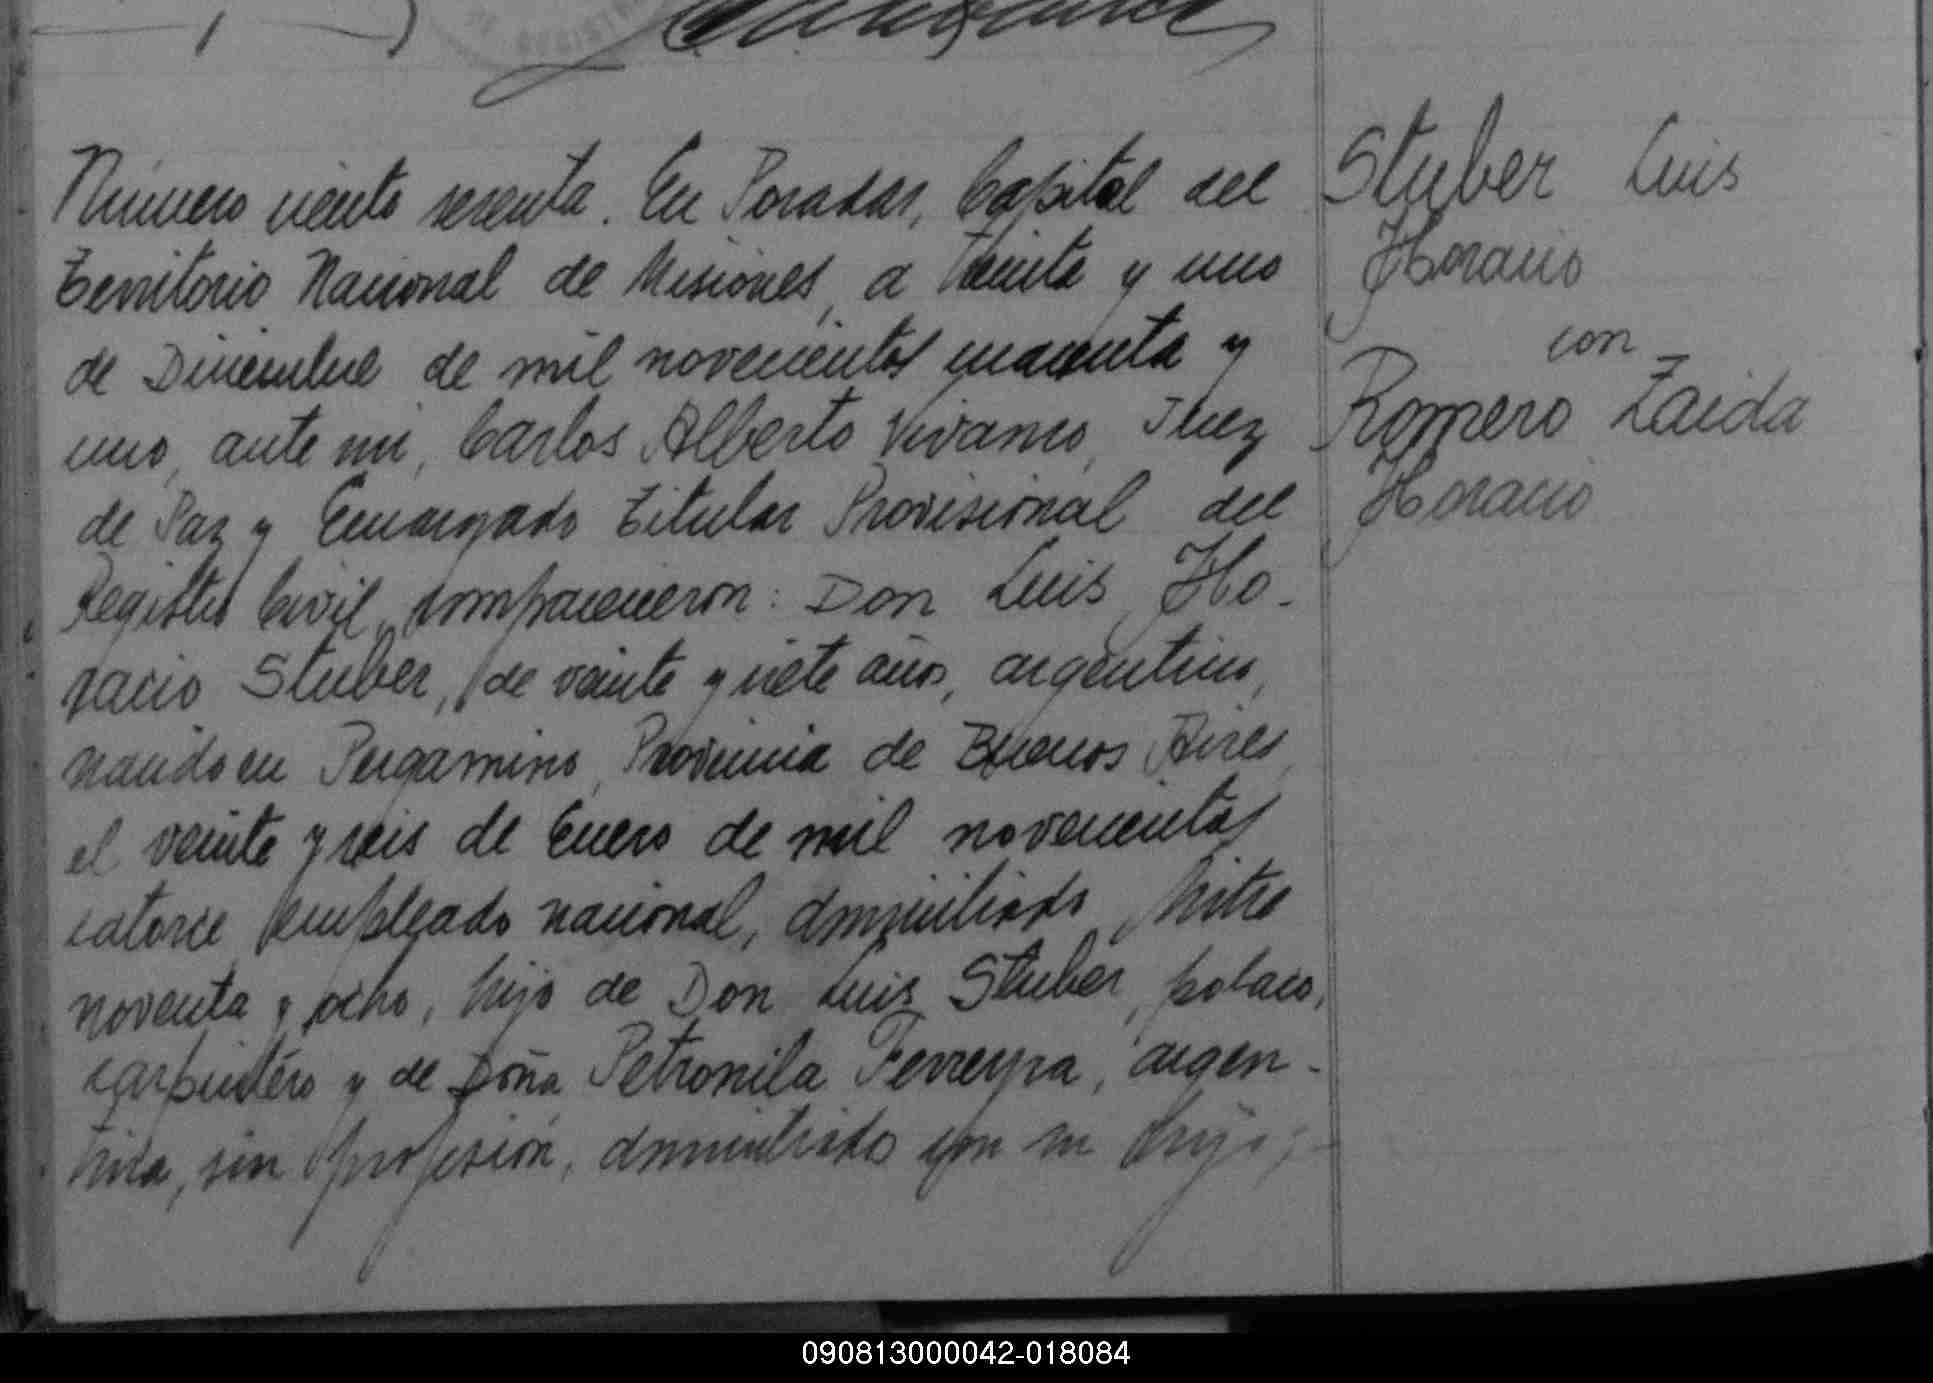 Número ciento sesenta. En Posadas, Capital del
Territorio Nacional de Misiones, a treinta y uno
de Diciembre de mil novecientos cuarenta y
uno, ante mi, Carlos Alberto Vivanco, Juez
de Paz y Encargado Titular Provisional del
Registro Civil, comparecieron: Don Luis Ho-
racio Stuber, de veinte y siete años, argentino,
nacido en Pergamino, Provincia de Buenos Aires,
el veinte y seis de Enero de mil novecientos
catorce, empleado nacional, domiciliado Mitre
noventa y ocho, hijo de Don Luis Stuber, polaco,
carpintero y de Doña Petronila Ferreyra, argen-
tina, sin profesión, domiciliado con su hijo;
Stuber Luis
Horacio
con
Romero Zaida
Horacio
090813000042-018084